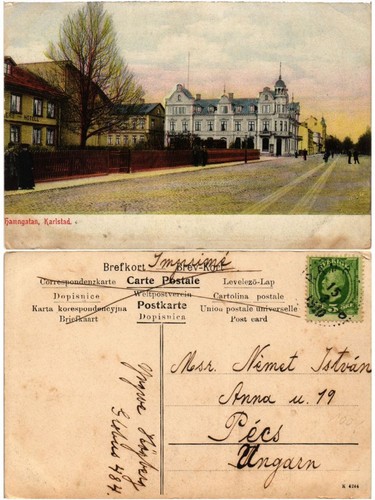 HOTEL
Hamngatan, Karlstad.
Imprimé
Brefkort Brev-Kort
Correspondenzkarte Carte Postale Levelező-Lap
Dopisnice Weltpostverein Cartolina postale
Karta korespondencyjna Postkarte Unione postale universelle
Briefkaart Dopisnica Post card
5
Msr. Német István
Anna u. 19
Pécs
Ungarn
Yngve
484.
K 4304